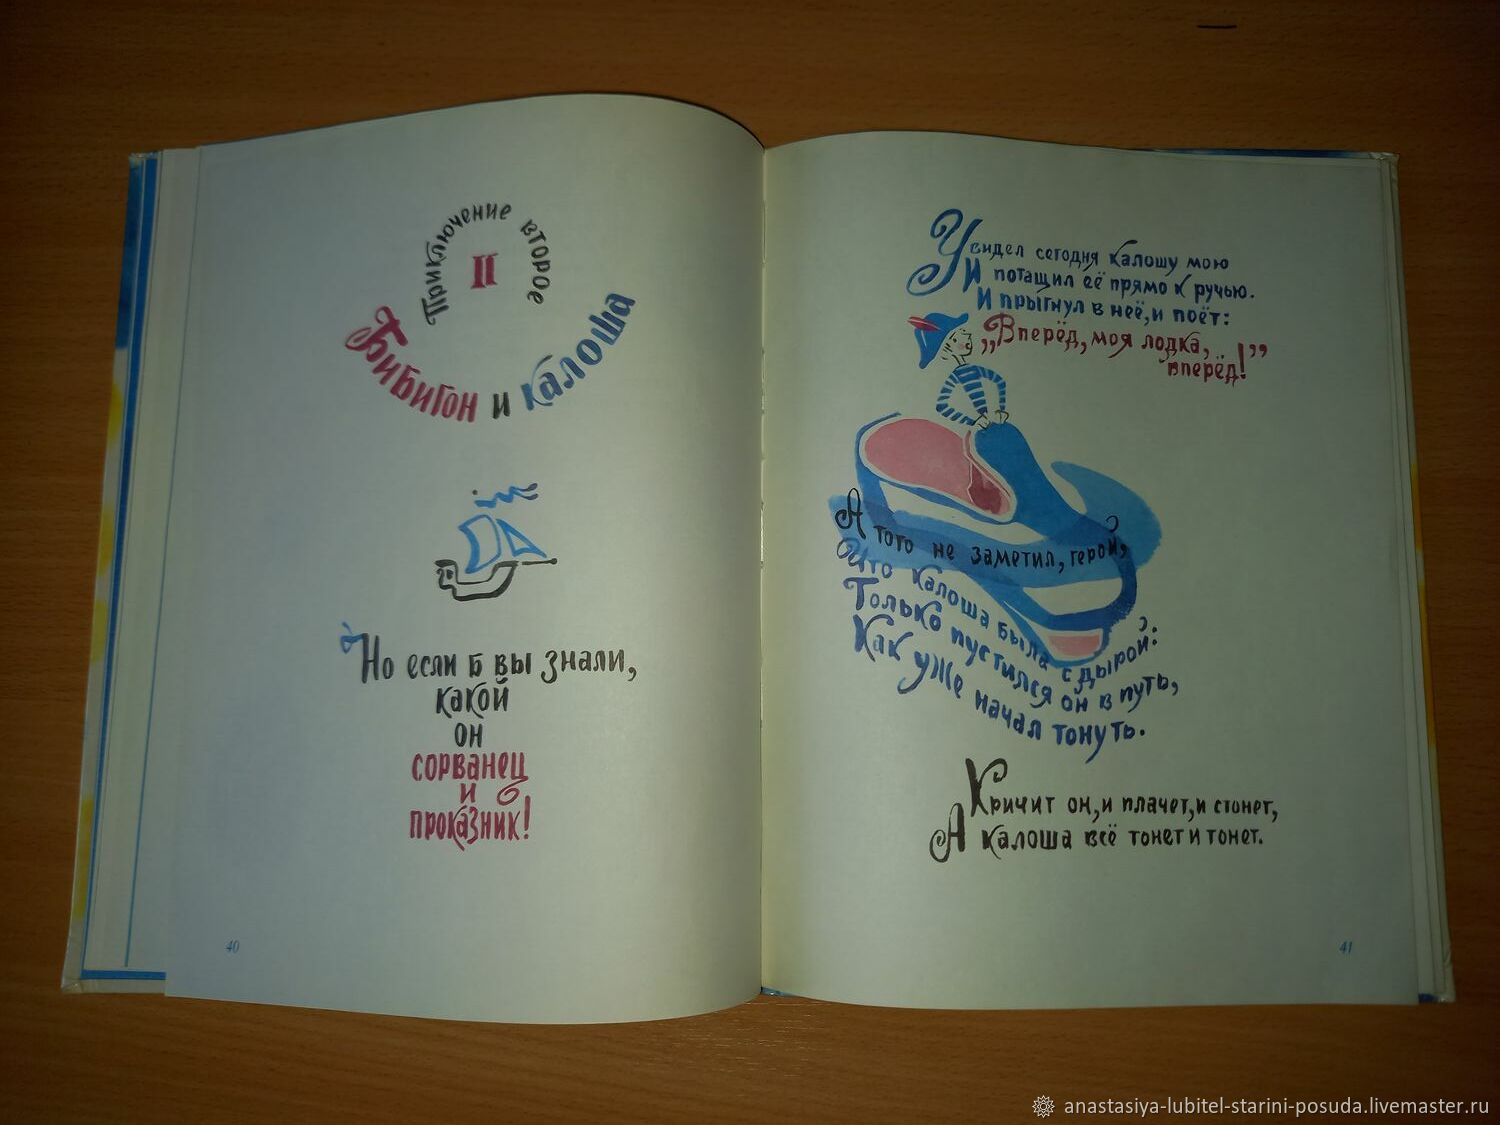 Приключение второе
II
Бибигон и калоша
Но если б вы знали,
какой
он
сорванец
и
проказник!
40
Увидел сегодня калошу мою
И потащил её прямо к ручью.
И прыгнул в неё, и поёт:
„Вперёд, моя лодка,
вперёд!”
А того не заметил, герой,
Что калоша была с дырой:
Только пустился он в путь,
Как уже начал тонуть.
Кричит он, и плачет, и стонет,
А калоша всё тонет и тонет.
41
anastasiya-lubitel-starini-posuda.livemaster.ru